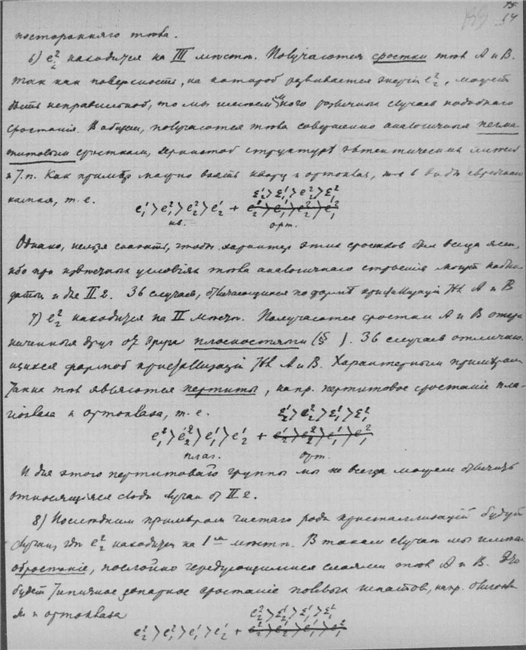 54
постороннего тела.
6) e²₂ находится на III месте. Получаются сростки тел A и B.
Так как поверхность, на которой развивается энергия e²₂, может
быть неправильной, то мы имеем много различных случаев подобного
срастания. В общем, получаются тела совершенно аналогичные пегма-
титовым сросткам, зернистой структуре эвтектических
и т.п. Как пример можно взять кварц и ортоклаз, т.е. в виде еврейского
камня, т.е. e'₁>e²₁>e²₂>e'₂ + Σ'₂>Σ'₁>Σ²₂>Σ²₁
кв. орт.
Однако, нельзя сказать, чтобы характер этих сростков был всегда ясен,
ибо при известных условиях тела аналогичного строения могут наблю-
даться и для II.2. 36 случаев, отличающихся по форме кристаллизации A и B
7) e²₂ находится на II месте. Получаются сростки A и B огра-
ниченные друг от друга плоскостями (§ ). 36 случаев отличаю-
щихся формой кристаллизации A и B. Характерным примером
таких тел являются пертиты, напр. пертитовое срастание пла-
гиоклаза и ортоклаза, т.е. Σ'₂>Σ²₂>Σ'₁>Σ²₁
e²₁>e²₂>e'₁>e'₂ +
плаг. орт.
И для этого пертитового группы мы не всегда можем отличить
относящиеся сюда случаи от II.2.
8) Последним примером чистого рода кристаллизаций будут
случаи, где e²₂ находится на 1ом месте. В таком случае мы имеем
обрастание, послойно чередующимися слоями тел A и B. Это
будет типичное зонарное срастание полевых шпатов, напр.
и ортоклаза Σ²₂>Σ'₂>Σ'₁>Σ²₁
e²₂>e²₁>e'₁>e'₂ +